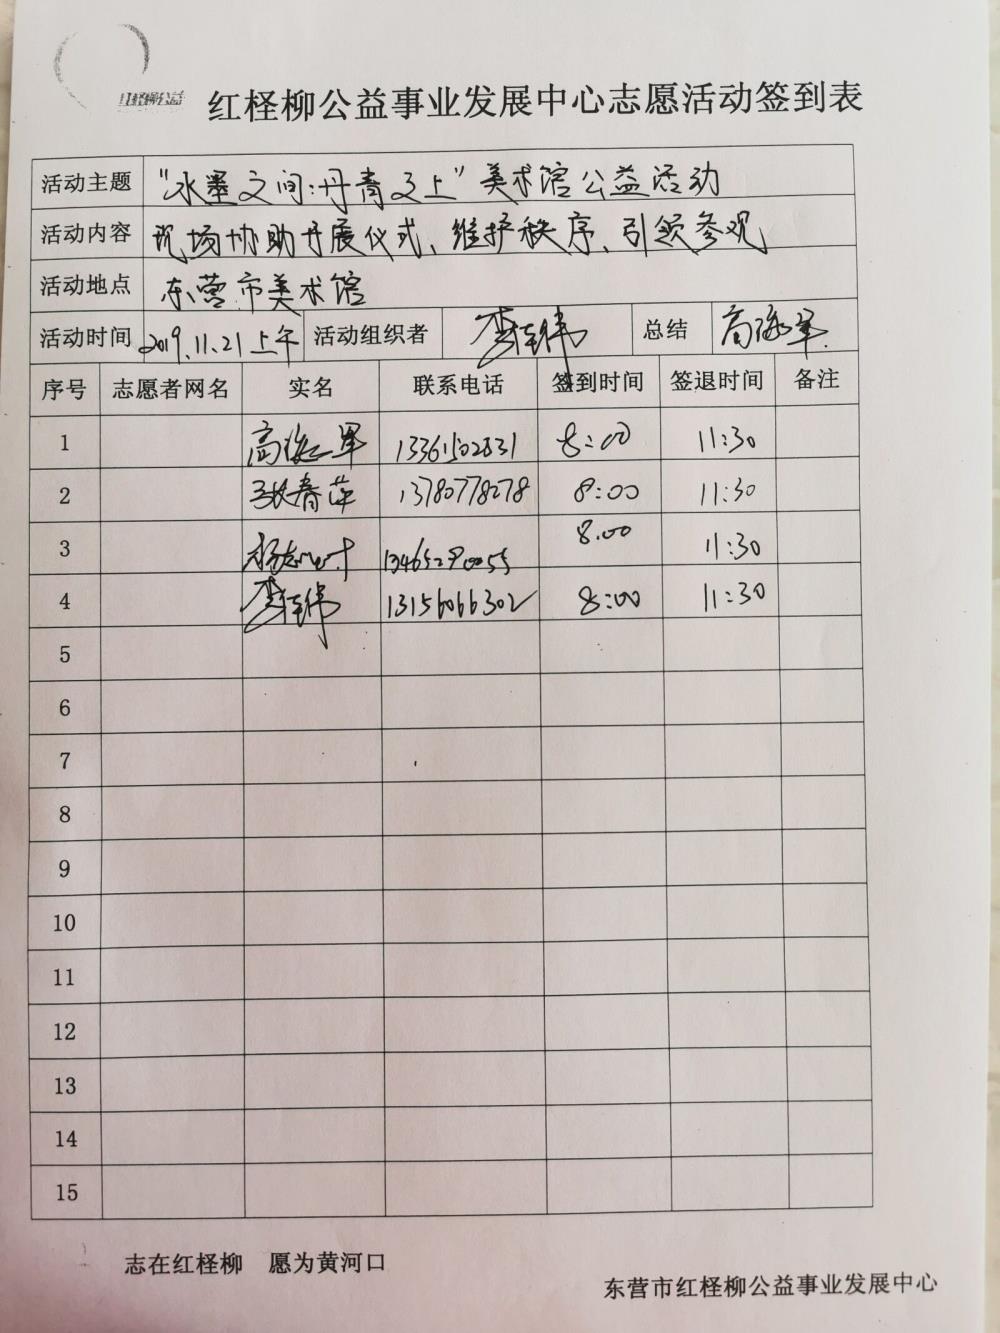 红柽柳公益
红柽柳公益事业发展中心志愿活动签到表
活动主题 "水墨之间:丹青之上"美术馆公益活动
活动内容 现场协助开展仪式、维护秩序、引领参观
活动地点 东营市美术馆
活动时间 2019.11.21上午 活动组织者 李 伟 总结 高 军
序号 志愿者网名 实名 联系电话 签到时间 签退时间 备注
1 高 军 13361502831 8:00 11:30
2 张春萍 13780778278 8:00 11:30
3 杨志 13465290055 8.00 11:30
4 李 伟 13156066302 8:00 11:30
5
6
7
8
9
10
11
12
13
14
15
志在红柽柳 愿为黄河口
东营市红柽柳公益事业发展中心